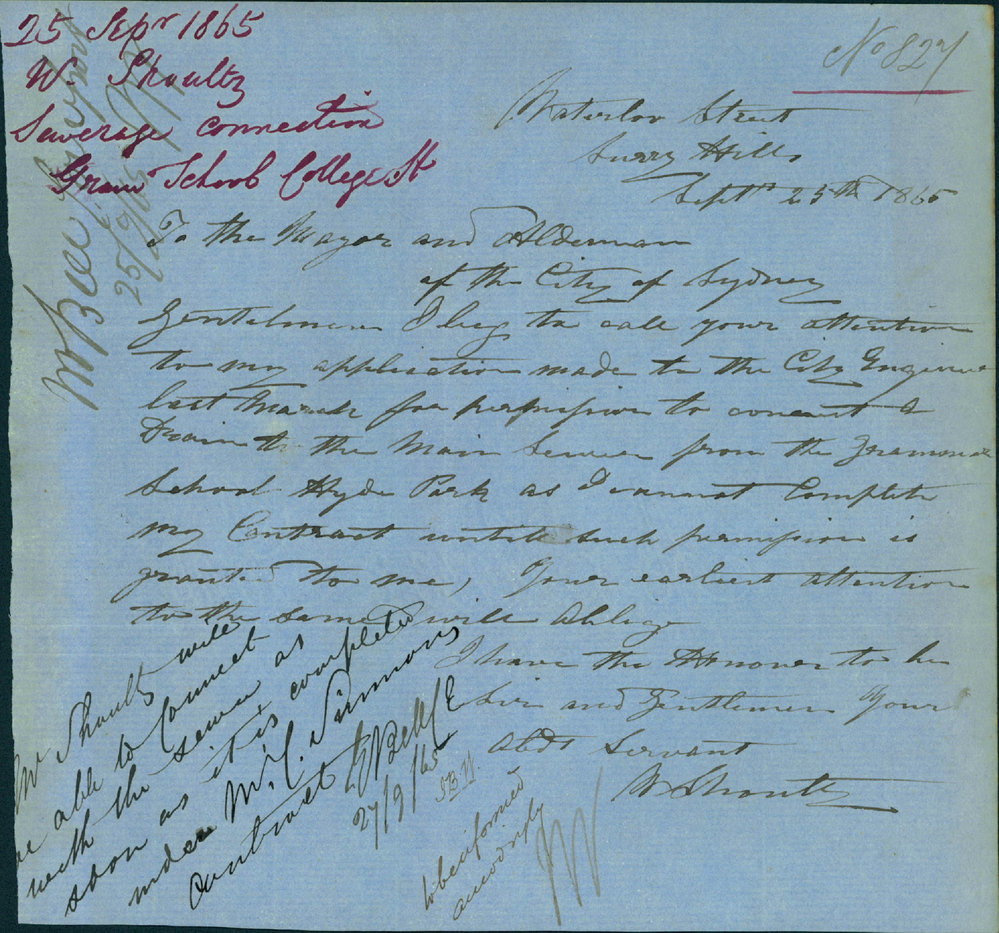 25 Sepr 1865
W. Shoultz
Sewerage connection
Gram School College St
No 827
Mr Bell for report
25/9/65
Waterloo Street
Surry Hills
Septr 25th 1865
To the Mayor and Alderman
of the City of Sydney
Gentelmen I beg to call your attention
to my application made to the City Engineer
last March for permission to connect a
Drain to the Main Sewer from the Grammar
School Hyde Park as I cannot Complete
my Contract untill such permission is
granted to me, Your earliest attention
to the same will Oblige
I have the Honour to be
Sir and Gentlemen Your
Obdt Servant
W Shoultz
Mr Shoultz will
be able to Connect
with the sewer as
soon as it is completed
under Mr C. Simmons
contract
E Bell CE
27/9/65
to be informed
accordingly